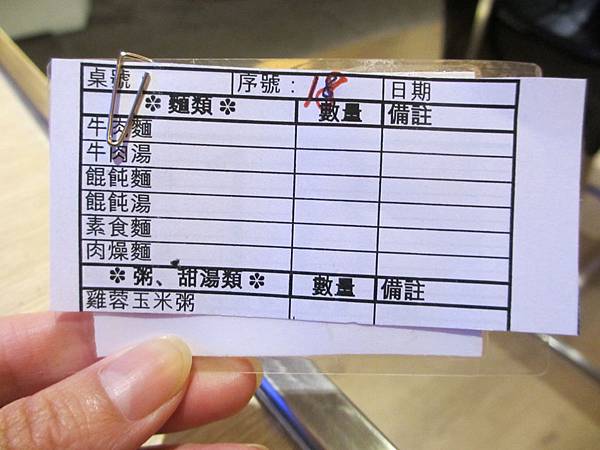 桌號 序號：18 日期
✽ 麵類 ✽ 數量 備註
牛肉麵
牛肉湯
餛飩麵
餛飩湯
素食麵
肉燥麵
✽ 粥、甜湯類 ✽ 數量 備註
雞蓉玉米粥